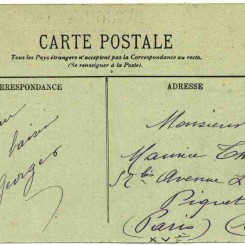 CARTE POSTALE
Tous les Pays étrangers n'acceptent pas la Correspondance au recto.
(Se renseigner à la Poste).
RRESPONDANCE
ADRESSE
Georges
Monsieur
Maurice
57 bis Avenue
Piquet
(Paris)
XVe